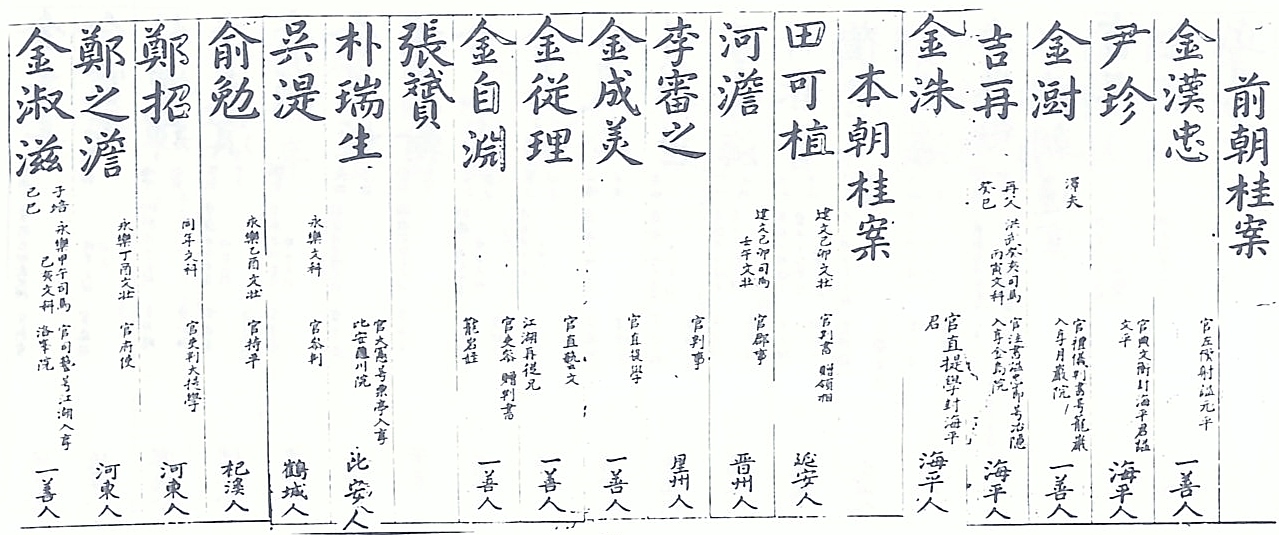 前朝桂案
金漢忠 官左僕射諡元平 一善人
尹珍 官典文衡封海平君諡文平 海平人
金澍 澤夫 官禮儀判書号籠巖入享月巖院 一善人
吉再 再父 癸巳 洪武癸亥司馬丙寅文科 官注書諡忠節号冶隱入享金烏院 海平人
金洙 官直提學封海平君 海平人
本朝桂案
田可植 建文己卯文壯 官判書 贈領相 延安人
河澹 建文己卯司馬壬午文壯 官郡事 晋州人
李審之 官判事 星州人
金成美 官直提學 一善人
金從理 官直藝文 江湖再從兄 一善人
金自淵 官吏參 贈判書 籠岩姪 一善人
張贇
朴瑞生 官大憲号栗亭入享比安龜川院 比安人
吳湜 永樂文科 官參判 鶴城人
俞勉 永樂乙酉文壯 官持平 杞溪人
鄭招 同年文科 官吏判大提學 河東人
鄭之澹 永樂丁酉文壯 官府使 河東人
金淑滋 子培 己巳 永樂甲午司馬己亥文科 官司藝号江湖入享洛峯院 一善人